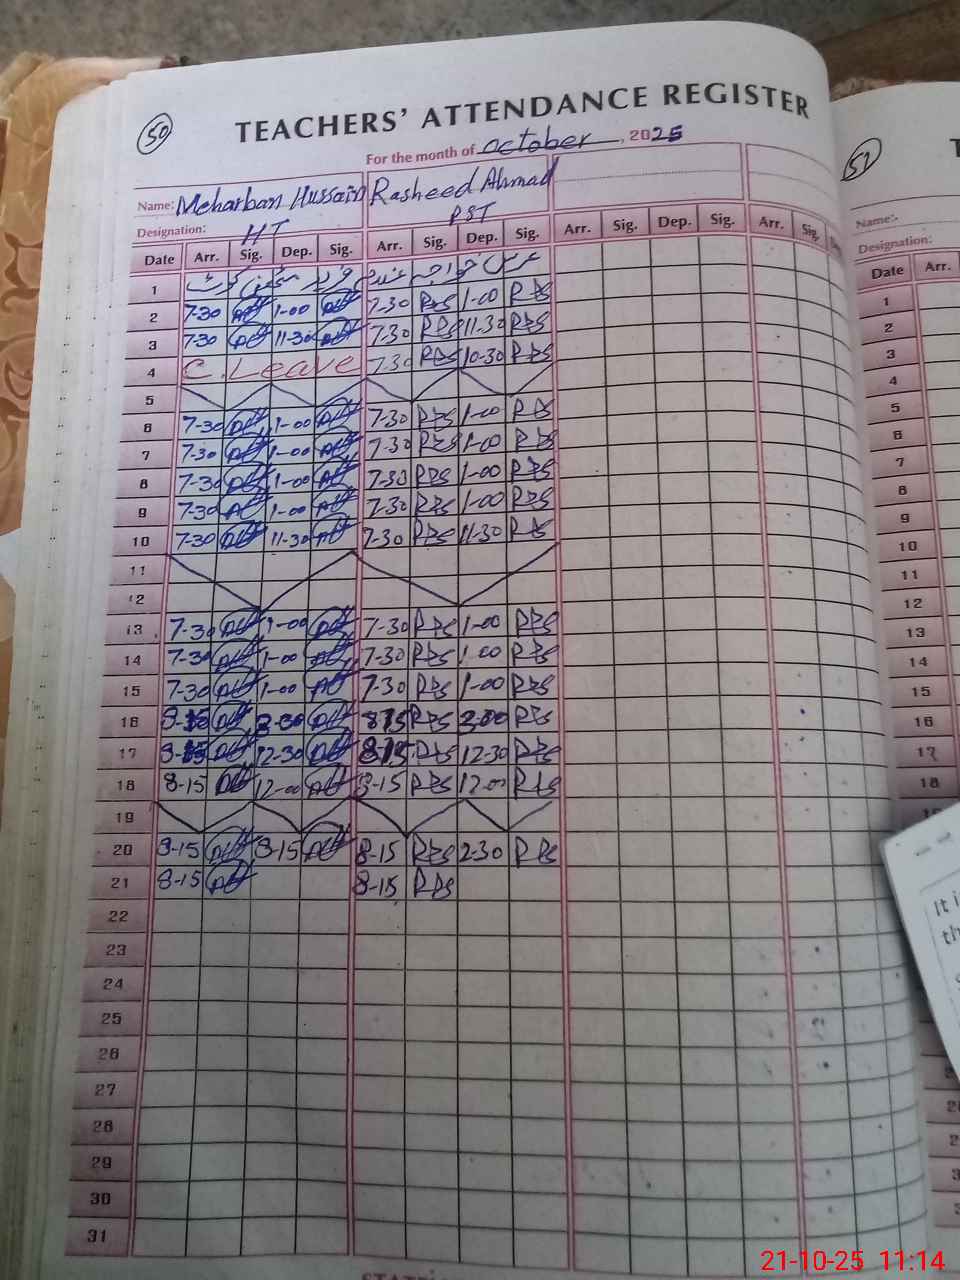 50
TEACHERS' ATTENDANCE REGISTER
For the month of October, 2025
Name: Meharban Hussain Rasheed Ahmad
Designation: HT PST
Date Arr. Sig. Dep. Sig. Arr. Sig. Dep. Sig. Arr. Sig. Dep. Sig. Arr. Sig.
1 عرس خواجہ غلام فرید
2 7-30 1-00 7-30 RBS 1-00 RBS
3 7-30 11-30 7-30 RBS 11-30 RBS
4 C. Leave 7-30 RBS 10-30 RBS
5
6 7-30 1-00 7-30 RBS 1-00 RBS
7 7-30 1-00 7-30 RBS 1-00 RBS
8 7-30 1-00 7-30 RBS 1-00 RBS
9 7-30 1-00 7-30 RBS 1-00 RBS
10 7-30 11-30 7-30 RBS 11-30 RBS
11
12
13 7-30 1-00 7-30 RBS 1-00 RBS
14 7-30 1-00 7-30 RBS 1-00 RBS
15 7-30 1-00 7-30 RBS 1-00 RBS
16 8-15 2-30 8-15 RBS RBS
17 8-15 12-30 8-15 RBS 12-30 RBS
18 8-15 12-00 8-15 RBS 12-00 RBS
19
20 8-15 8-15 8-15 RBS 2-30 RBS
21 8-15 8-15 RBS
22
23
24
25
26
27
28
29
30
31
51
T
Name:-
Designation:
Date Arr.
1
2
3
4
5
6
7
8
9
10
11
12
13
14
15
16
17
18
It i
th
21-10-25 11:14